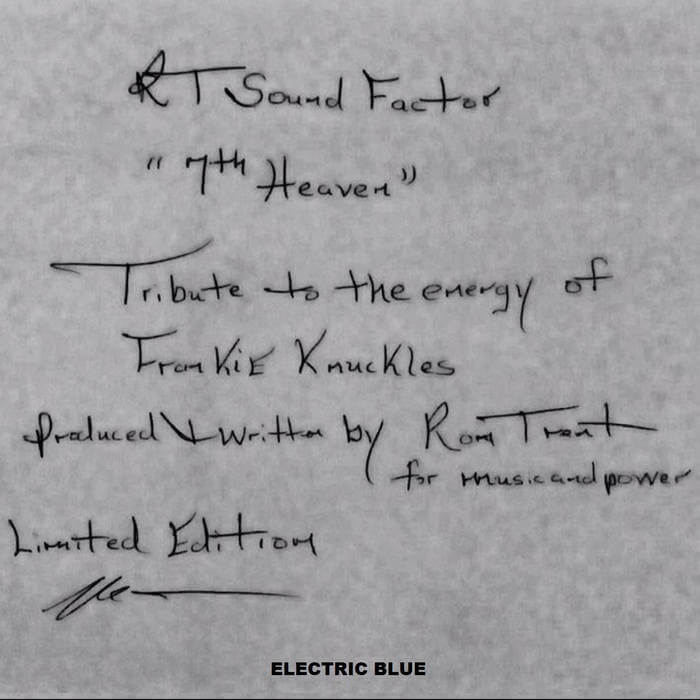 RT Sound Factor
"7th Heaven"
Tribute to the energy of
Frankie Knuckles
produced + written by Ron Trent
for music and power
Limited Edition
ELECTRIC BLUE